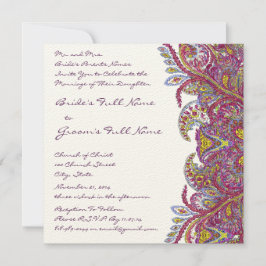 Mr. and Mrs.
Bride's Parents Names
Invite You to Celebrate the
Marriage of Their Daughter
Bride's Full Name
to
Groom's Full Name
Church of Christ
123 Church Street
City, State
November 21, 2014
three o'clock in the afternoon
Reception To Follow
Please R.S.V.P. By 11.07.14